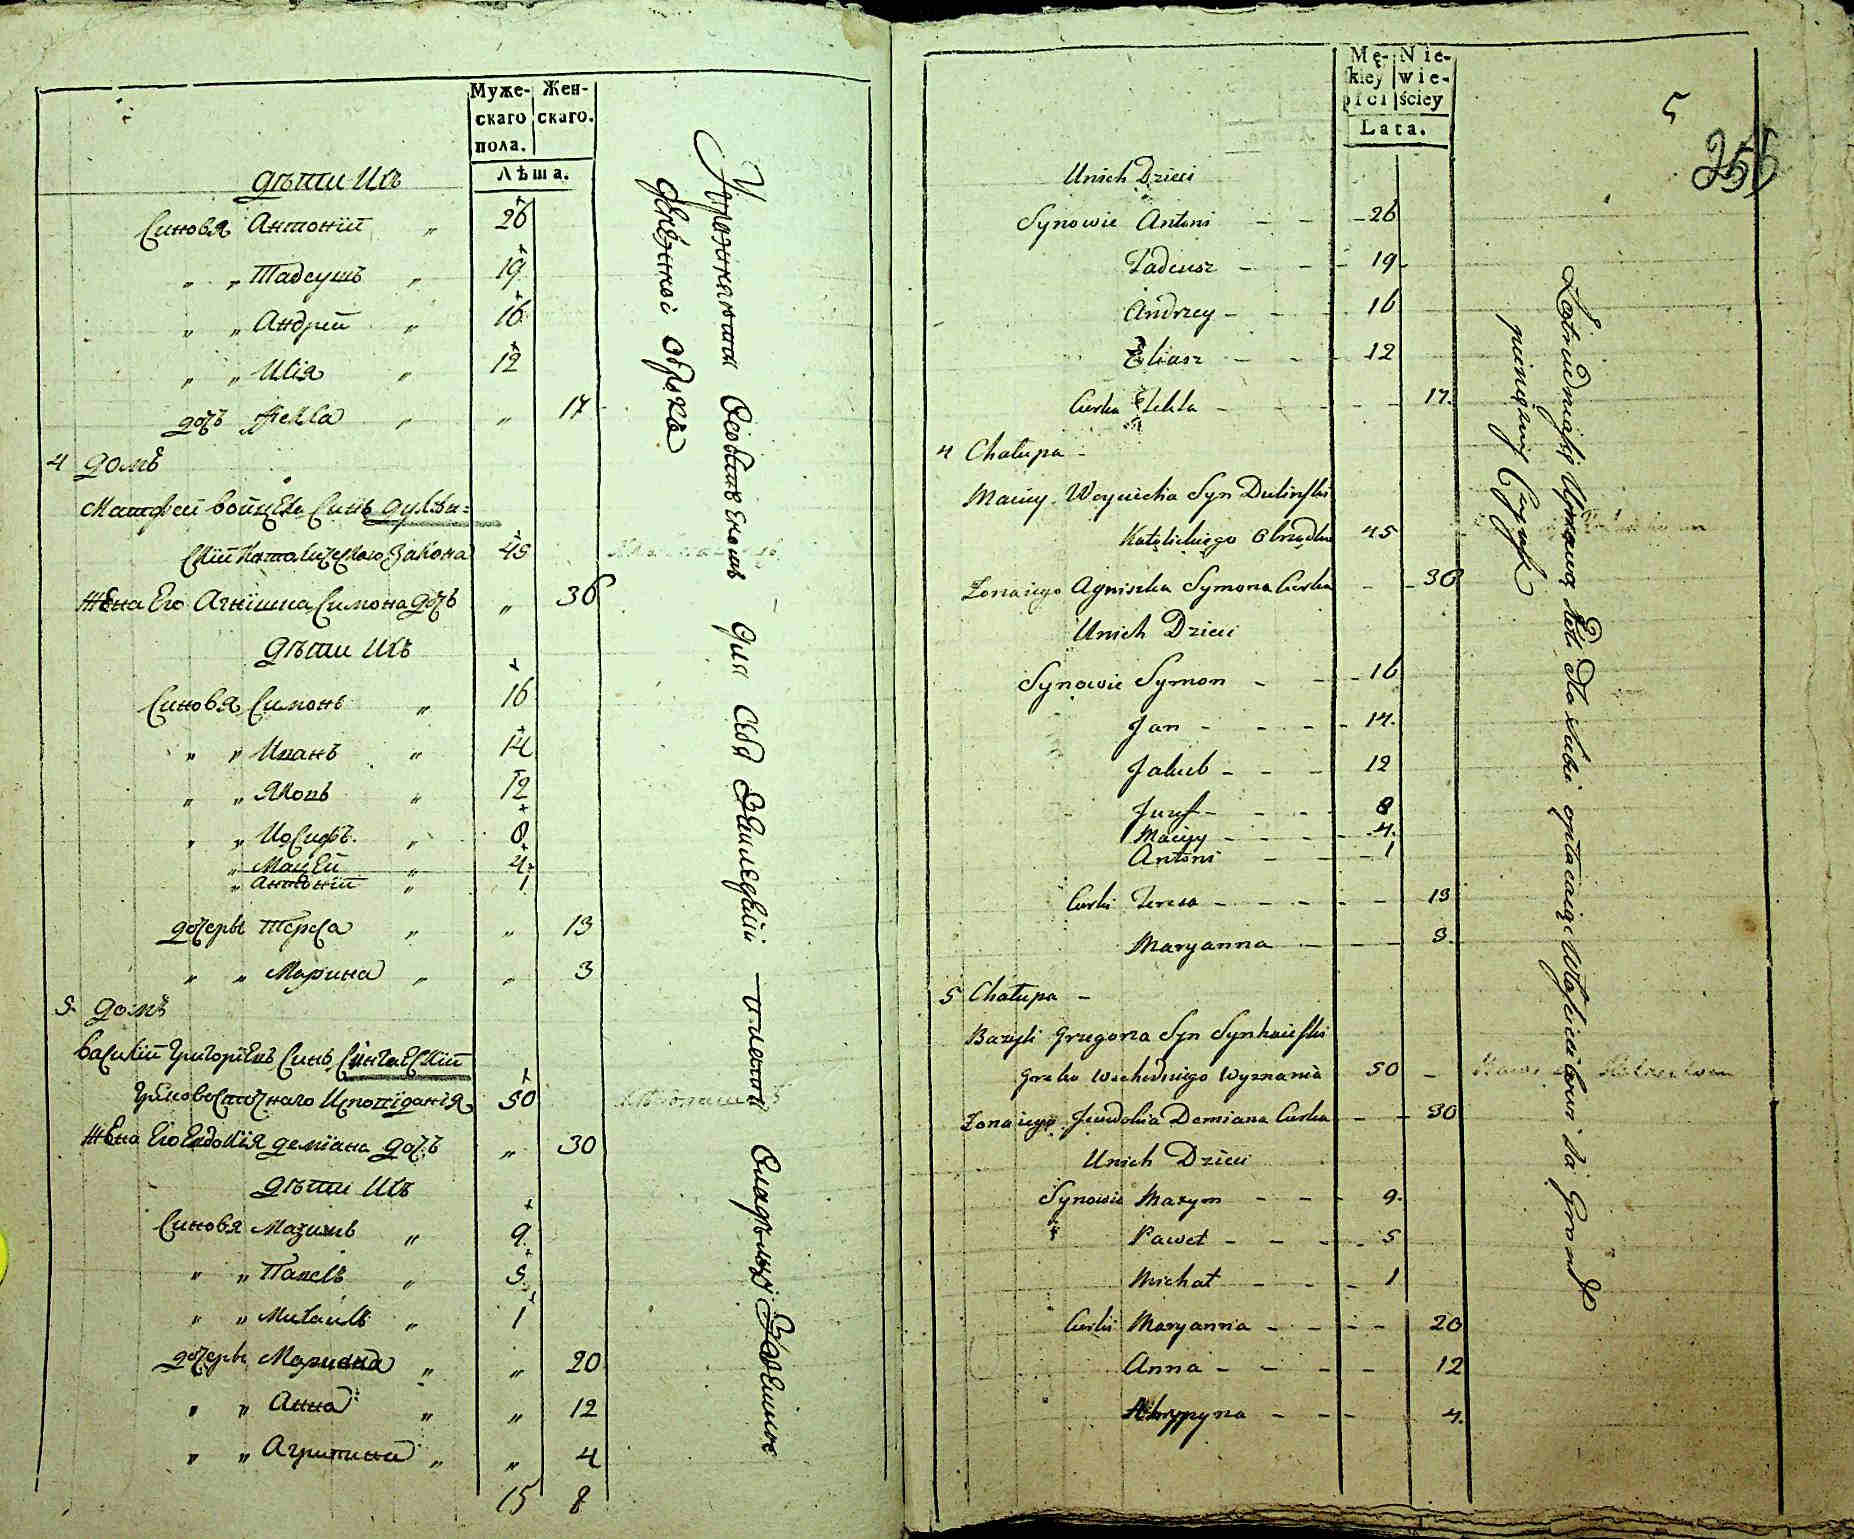 Муже-
скаго
пола.
Жен-
скаго.
Лѣта.
дѣти Ихъ
Синовя Антоній „ 26
„ „ Тадеушъ „ 19
„ „ Андрей „ 16
„ „ Илія „ 12
дочь Текла „ „ 17
4 домъ
Матфей войцеха Синъ дулѣн=
скій Католическаго Закона 45
жена Его Агнішка Симона дочь „ 36
дѣти Ихъ
Синовя Симонъ „ 16
„ „ Иванъ „ 14
„ „ Яковъ „ 12
„ „ Иосифъ „ 8
„ Мацей „ 4
„ Антоній „ 1
дочеры Тереса „ „ 13
„ „ Марина „ „ 3
5 домъ
василій Григоріевъ Синъ Сингаевскій
Грековосточнаго Исповіданія 50
жена Его Евдокія деміана дочь „ 30
дѣти Ихъ
Синовя Мазимъ „ 9
„ „ Павелъ „ 5
„ „ Михаилъ „ 1
дочеры Марина „ „ 20
„ „ Анна „ „ 12
„ „ Агрипина „ „ 4
15 8
Упражняются Особственномъ для себя Земледѣліи платя владѣльцу За Землю
денежной оброкъ
Mę-
skiey
płci
Nie-
wie-
ściey
Lata.
5
255
Unich Dzieci
Synowie Antoni - - 26
Tadeusz - - 19
Andrzey - - 16
Eliasz - - 12
Curka Tekla - - 17
4 Chałupa -
Maciey Woyciecha Syn Dulinski
Katolickiego Obrządku 45
Zona iego Agniszka Symona Curka - 36
Unich Dzieci
Synowie Symon - - 16
Jan - - 14
Jakub - - 12
Juzef - - 8
Maciey - - 4
Antoni - - 1
Curki Teresa - - 13
Maryanna - - 3
5 Chałupa -
Bazyli Grzegorza Syn Synhaiewski
Greko Wschodniego Wyznania 50 -
Zona iego Jewdokia Demiana Curka - 30
Unich Dzieci
Synowie Maxym - - 9
Paweł - - 5
Michał - - 1
Curki Maryanna - - 20
Anna - - 12
Ahrypyna - - 4
Zatrudniaią się Uprawą Roli dla siebie opłacaiąc Właścicielowi za Grunt
pienięzny Czynsz